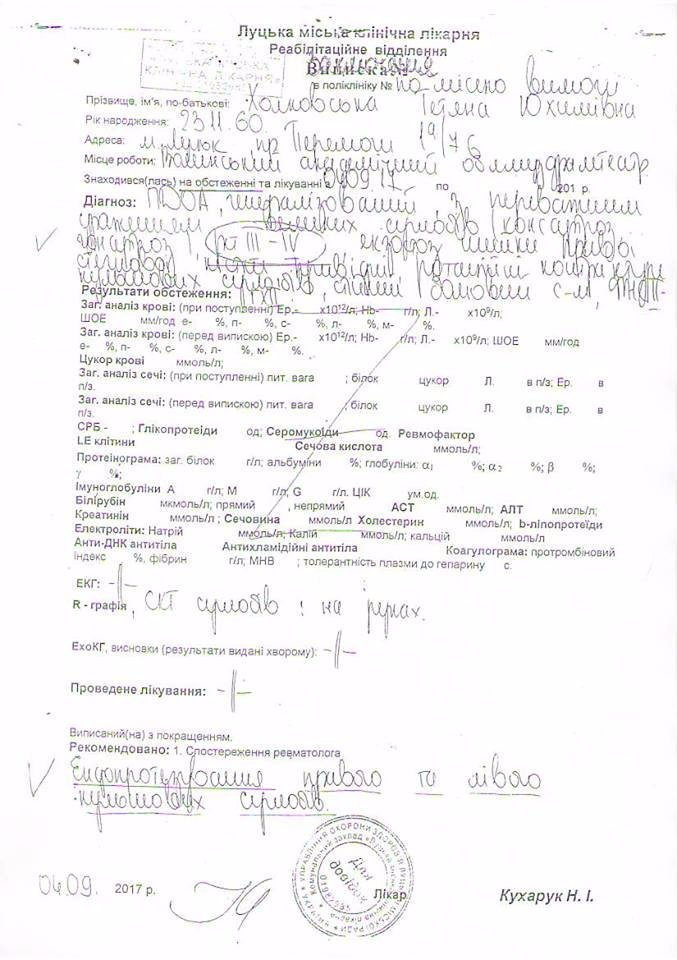 Луцька міська клінічна лікарня
Реабілітаційне відділення
Виписка №
в поліклініку № по місцю вимоги
Прізвище, ім'я, по-батькові: Тетяна Юхимівна
Рік народження: 23 11. 60.
Адреса: м. Луцьк пр Перемоги 19/76
Місце роботи: Волинський академічний облмуздрамтеатр.
Знаходився(лась) на обстеженні та лікуванні з 04 09. 17 по 201 р.
Діагноз: ПДОА, генералізований, з переважним
ураженням великих суглобів (коксартроз
гонартроз, рт III – IV
кульшових суглобів,
Результати обстеження:
Заг. аналіз крові: (при поступленні) Ер.- х10¹²/л; Hb- г/л; Л.- х10⁹/л;
ШОЕ мм/год е- %, п- %, с- %, л- %, м- %.
Заг. аналіз крові: (перед випискою) Ер.- х10¹²/л; Hb- г/л; Л.- х10⁹/л; ШОЕ мм/год
е- %, п- %, с- %, л- %, м- %.
Цукор крові ммоль/л;
Заг. аналіз сечі: (при поступленні) пит. вага ; білок цукор Л. в п/з; Ер. в
п/з.
Заг. аналіз сечі: (перед випискою) пит. вага ; білок цукор Л. в п/з; Ер. в
п/з.
СРБ - ; Глікопротеїди од; Серомукоїди од. Ревмофактор
LE клітини Сечова кислота ммоль/л;
Протеїнограма: заг. білок г/л; альбуміни %; глобуліни: α₁ %; α₂ %; β %;
γ %;
Імуноглобуліни А г/л; М г/л; G г/л. ЦІК ум.од.
Білірубін мкмоль/л; прямий , непрямий АСТ ммоль/л; АЛТ ммоль/л;
Креатинін ммоль/л ; Сечовина ммоль/л Холестерин ммоль/л; b-ліпопротеїди
Електроліти: Натрій ммоль/л; Калій ммоль/л; кальцій ммоль/л
Анти-ДНК антитіла Антихламідійні антитіла Коагулограма: протромбіновий
індекс %, фібрин г/л; МНВ ; толерантність плазми до гепарину с.
ЕКГ: -||-
R - графія, СКТ суглобів : на руках.
ЕхоКГ, висновки (результати видані хворому): -||-
Проведене лікування: -||-
Виписаний(на) з покращенням.
Рекомендовано: 1. Спостереження ревматолога
Ендопротезування правого та лівого
кульшових суглобів.
Для
довідок
04.09. 2017 р. Лікар Кухарук Н. І.